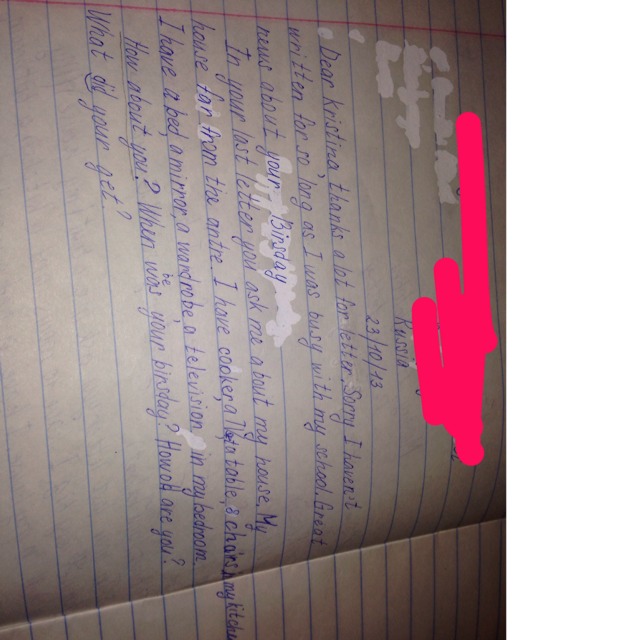 Russia
23/10/13
Dear Kristina thanks a lot for letter. Sorry I haven't
written for so long as I was busy with my school. Great
news about your Birsday
In your last letter you ask me about my house. My
house far from the antre. I have cooker, a table, 8 chairs my kitchen
I have a bed, a mirror, a wardrobe, a television in my bedroom.
How about you? When was be your birsday? How old are you?
What did your get?